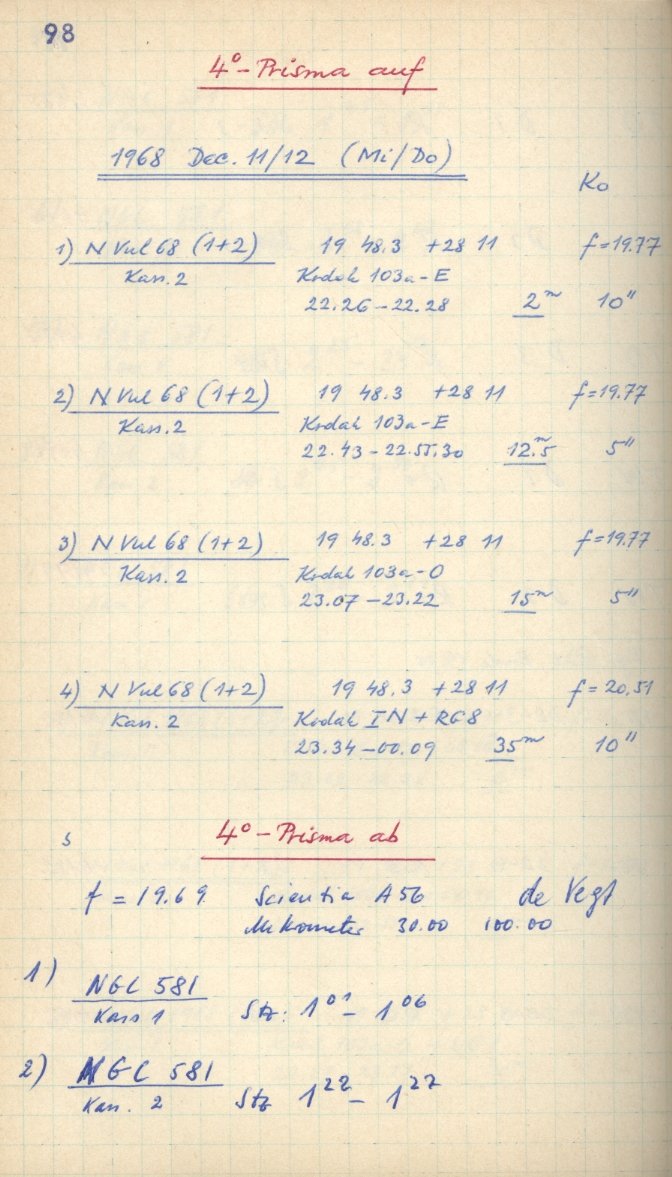 98
4°-Prisma auf
1968 Dec. 11/12 (Mi/Do)
Ko
1) N Vul 68 (1+2) 19 48.3 +28 11 f=19.77
Kass. 2 Kodak 103a-E
22.26-22.28 2ᵐ 10"
2) N Vul 68 (1+2) 19 48.3 +28 11 f=19.77
Kass. 2 Kodak 103a-E
22.43-22.55.30 12.ᵐ5 5"
3) N Vul 68 (1+2) 19 48.3 +28 11 f=19.77
Kass. 2 Kodak 103a-O
23.07-23.22 15ᵐ 5"
4) N Vul 68 (1+2) 19 48.3 +28 11 f=20.51
Kass. 2 Kodak IN + RG8
23.34-00.09 35ᵐ 10"
s 4°-Prisma ab
f = 19.69 Scientia A56 de Vegt
Mikrometer 30.00 100.00
1) NGC 581
Kass 1 Stz: 1⁰¹ - 1⁰⁶
2) NGC 581
Kass. 2 Stz 1²² - 1²⁷